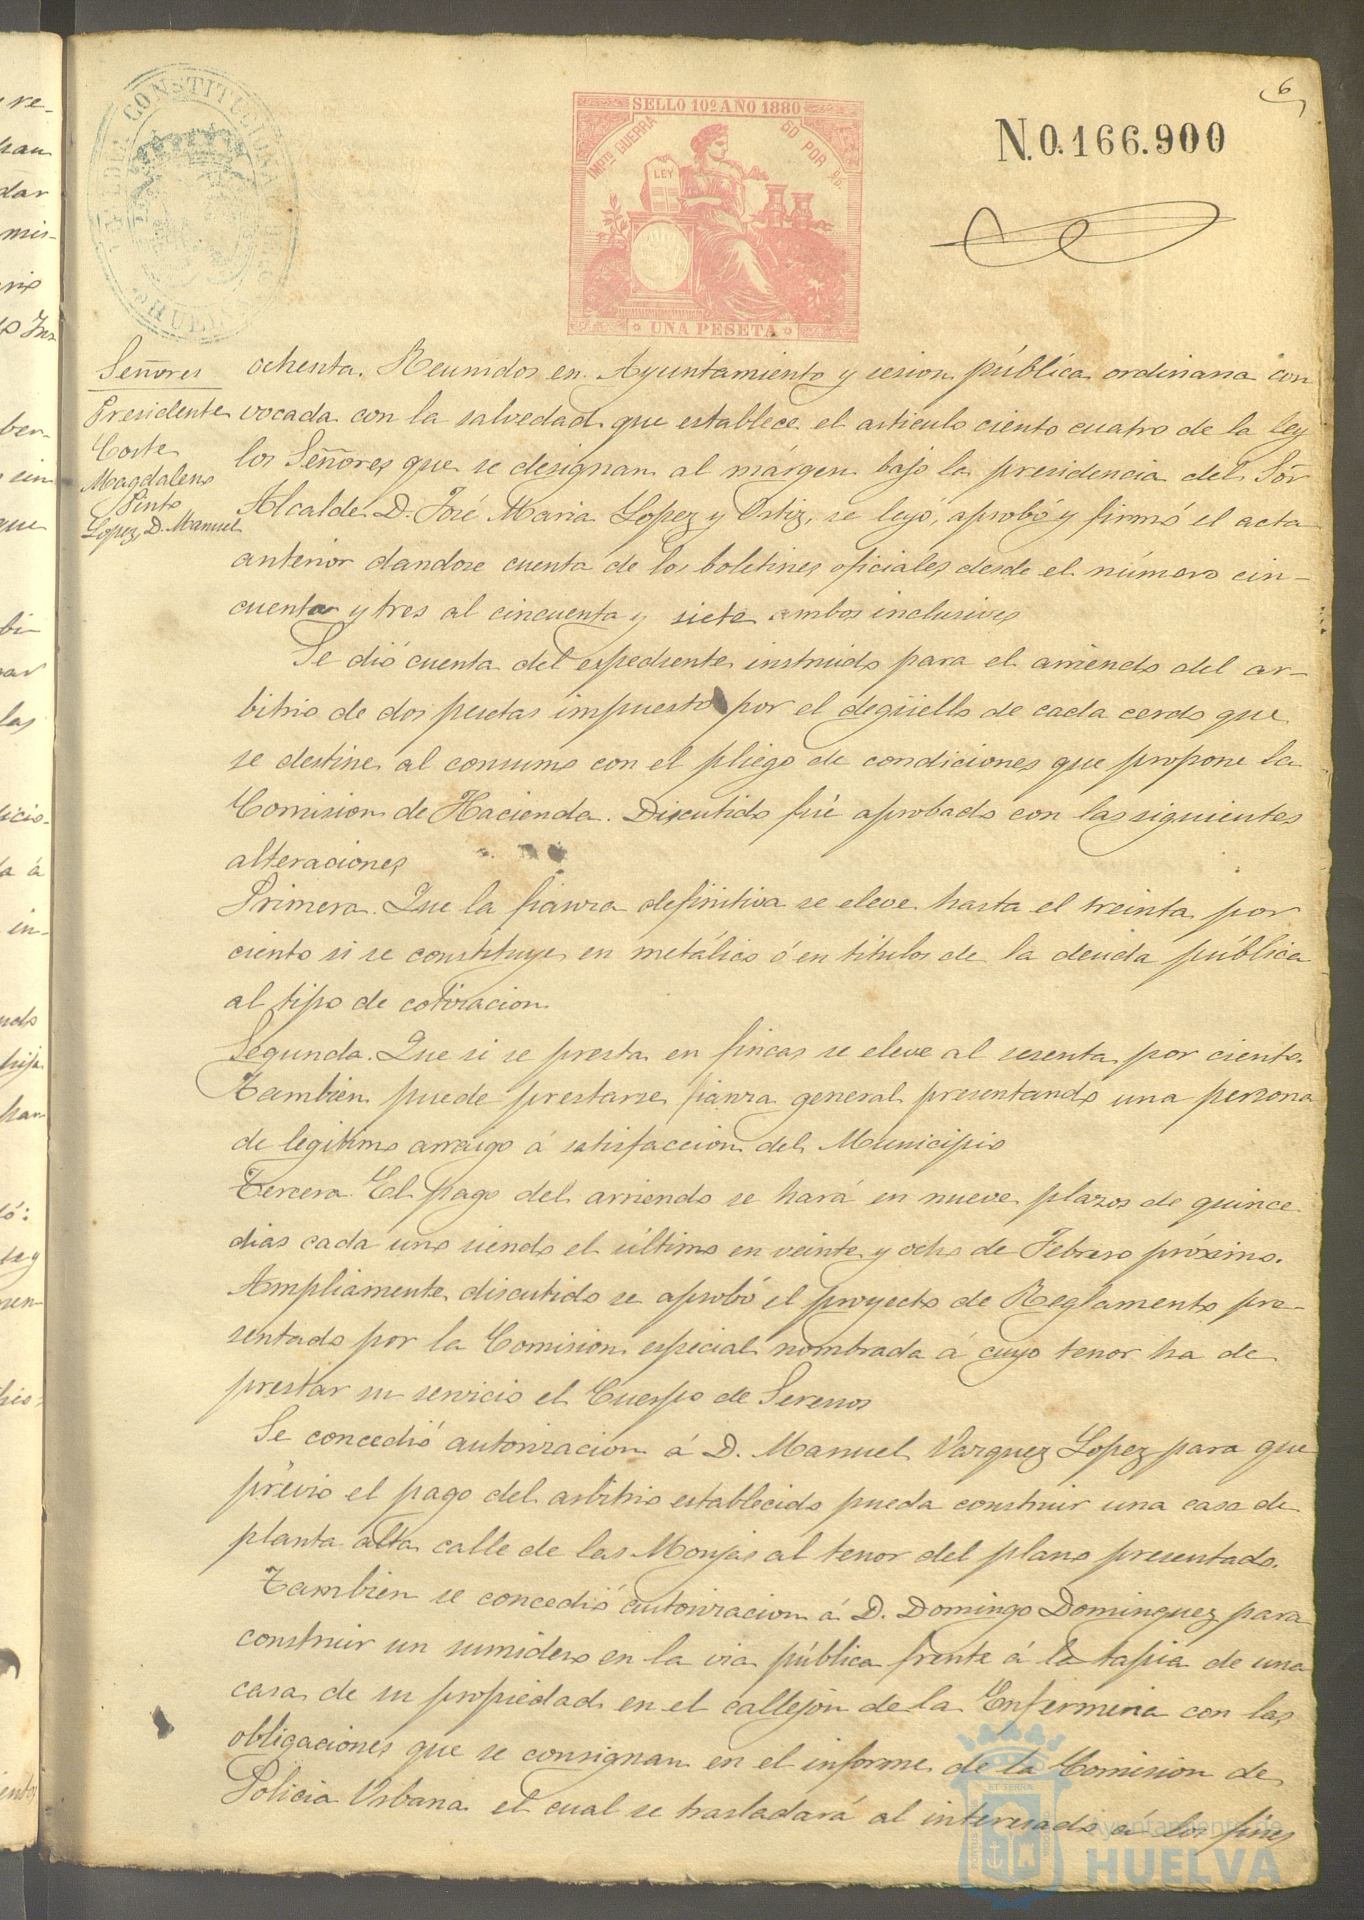 6
SELLO 10º AÑO 1880
IMPTO GUERRA
50 POR %
LEY
UNA PESETA
N.0.166.900
CONSTITUCIONAL
HUELVA
Señores
Presidente
Coste
Magdaleno
Pinto
Lopez, D. Manuel
ochenta. Reunidos en Ayuntamiento y sesion pública ordinaria con
vocada con la salvedad que establece el articulo ciento cuatro de la Ley
los Señores que se designan al márgen bajo la presidencia del Sõr
Alcalde D. José Maria Lopez y Ortiz, se leyó, aprobó y firmó el acta
anterior dandose cuenta de los boletines oficiales desde el número cin-
cuenta y tres al cincuenta y siete ambos inclusives
Se dió cuenta del espediente instruido para el arriendo del ar-
bitrio de dos pesetas impuesto por el degüello de cada cerdo que
se destine al consumo con el pliego de condiciones que propone la
Comision de Hacienda. Discutido fué aprobado con las siguientes
alteraciones
Primera. Que la fianza definitiva se eleve hasta el treinta por
ciento si se constituye en metálico ó en titulos de la deuda pública
al tipo de cotizacion.
Segunda. Que si se presta en fincas se eleve al sesenta por ciento.
Tambien puede prestarse fianza general presentando una persona
de legitimo arraigo á satisfaccion del Municipio
Tercera. El pago del arriendo se hará en nueve plazos de quince
dias cada uno siendo el último en veinte y ocho de Febrero próximo.
Ampliamente discutido se aprobó el proyecto de Reglamento pre-
sentado por la Comision especial nombrada á cuyo tenor ha de
prestar su servicio el Cuerpo de Serenos
Se concedió autorizacion á D. Manuel Vazquez Lopez para que
prévio el pago del arbitrio establecido pueda construir una casa de
planta alta calle de las Monjas al tenor del plano presentado.
Tambien se concedió autorizacion á D. Domingo Dominguez para
construir un sumidero en la via pública frente á la tapia de una
casa de su propiedad en el callejon de la Enfermeria con las
obligaciones que se consignan en el informe de la Comision de
Policia Urbana el cual se trasladará al interesado á los fines
Ayuntamiento de
HUELVA